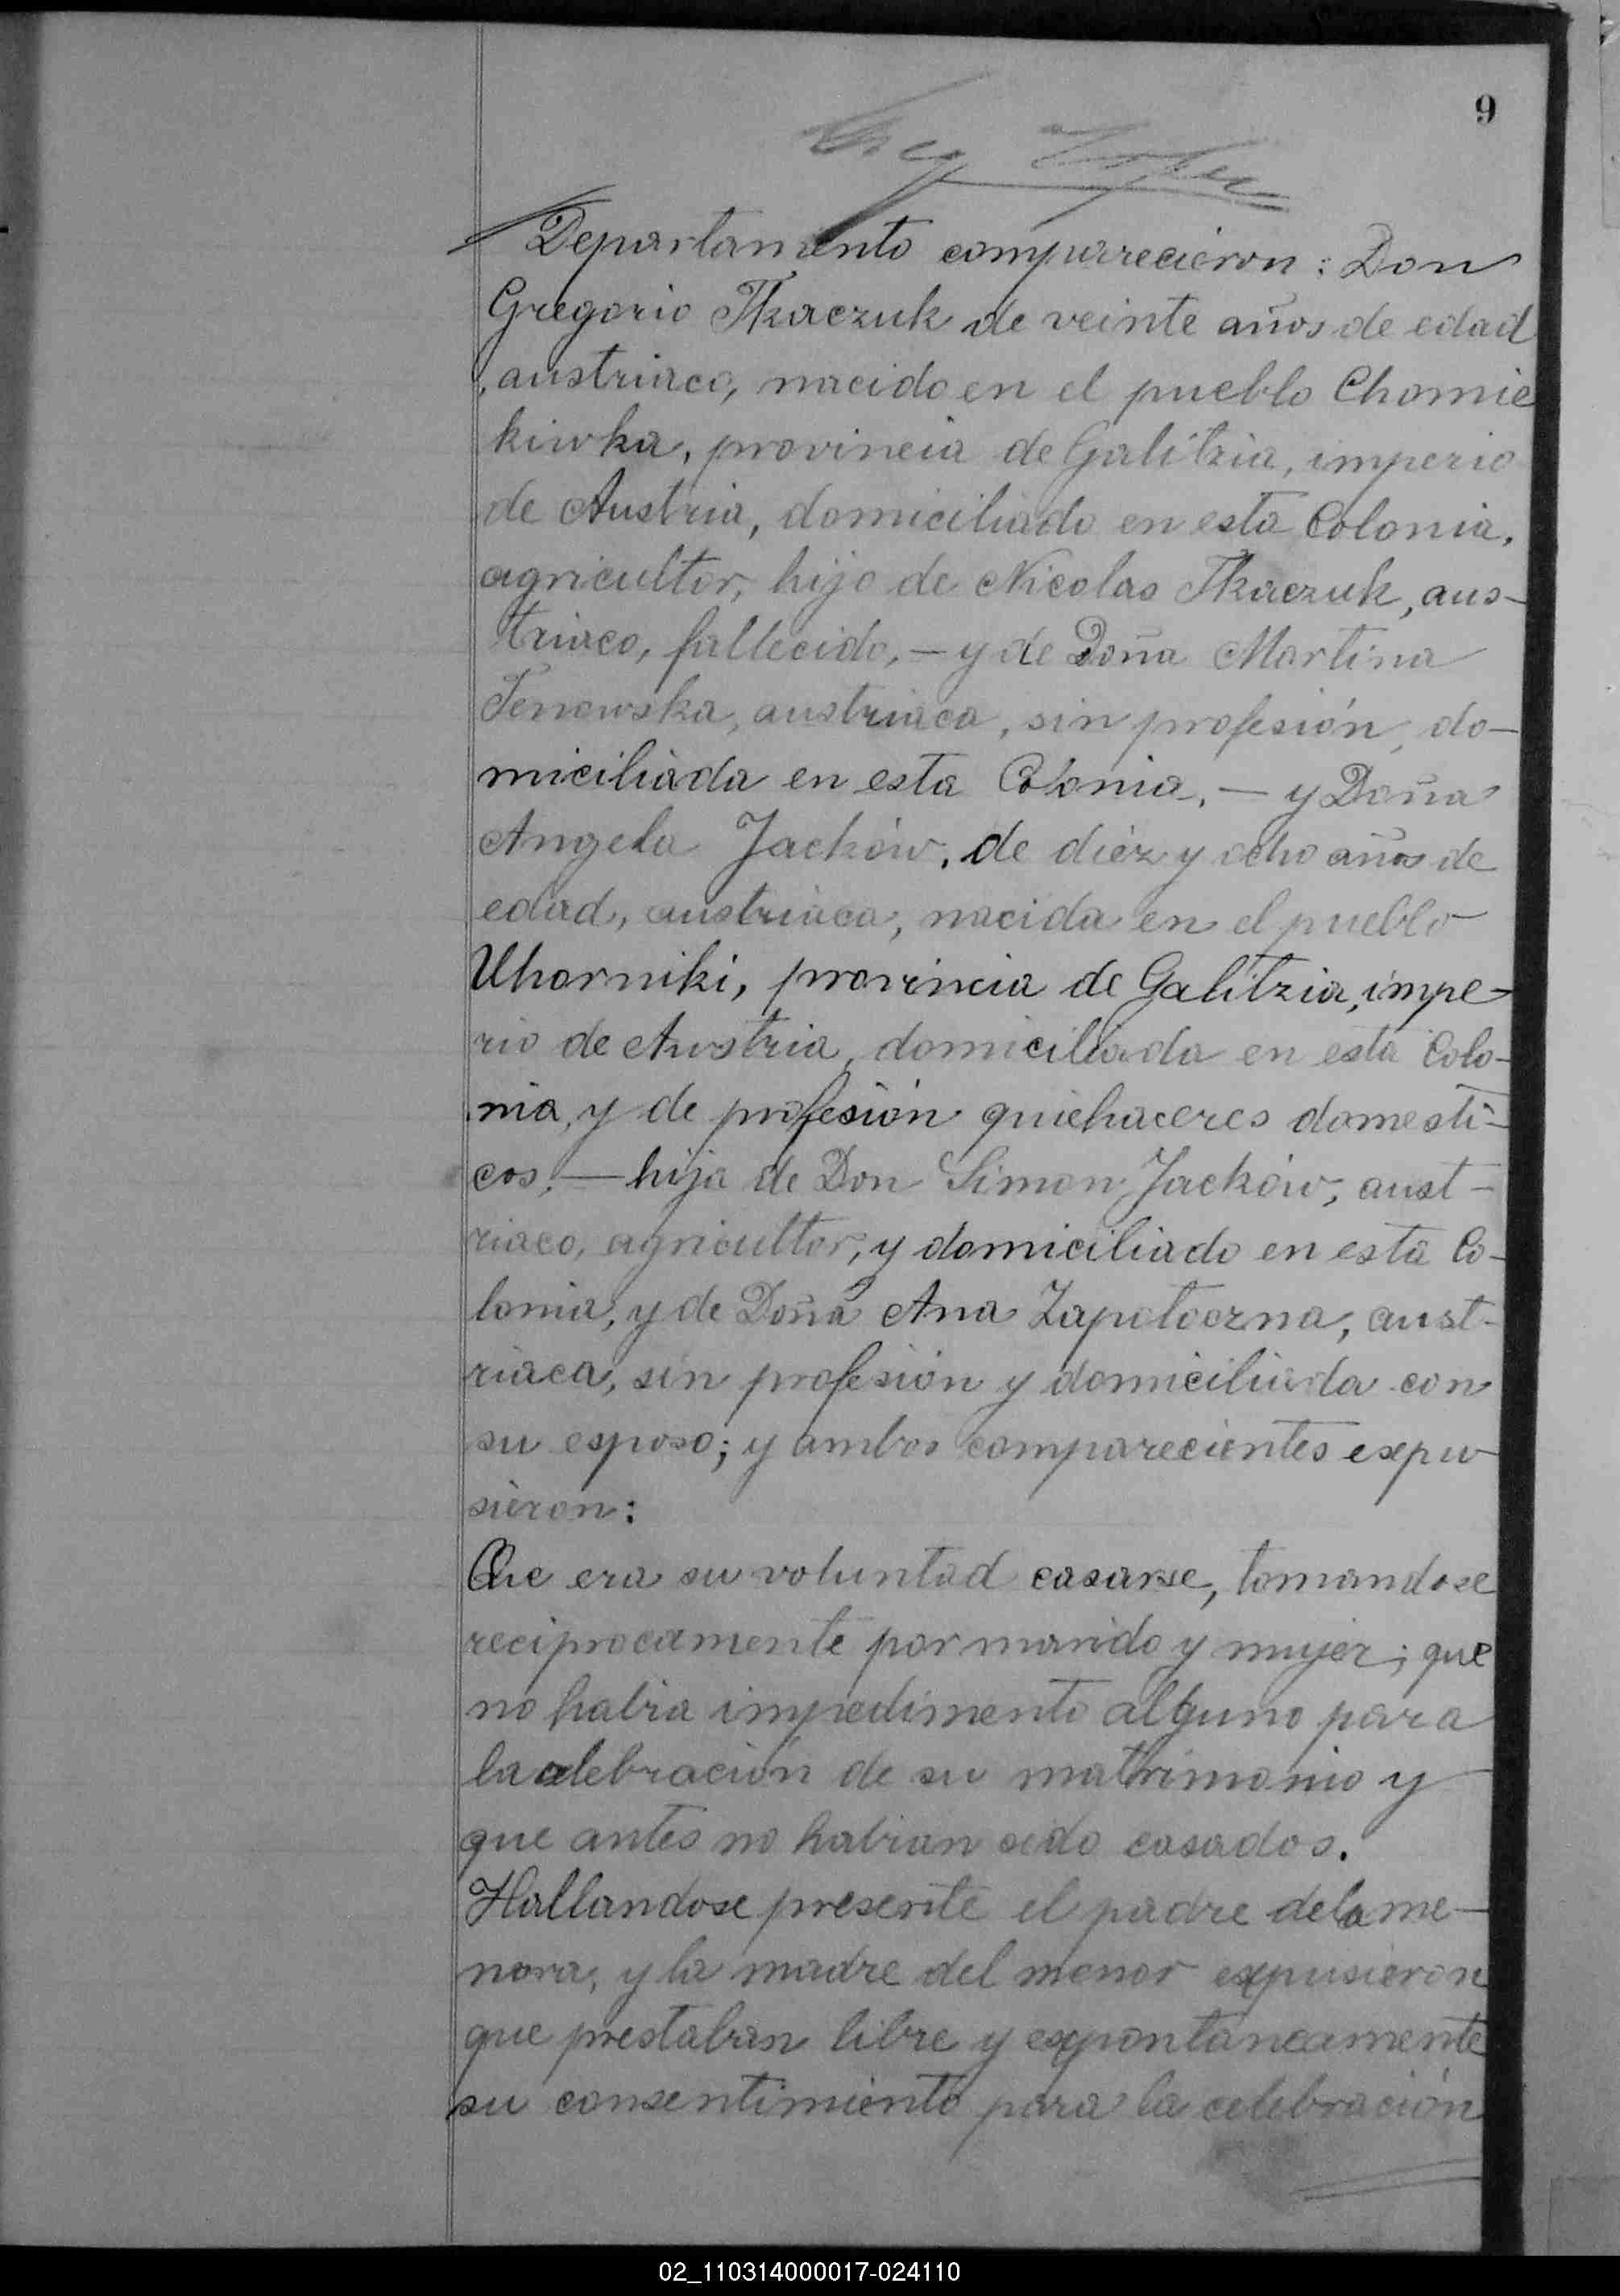 9
Departamento comparecieron: Don
Gregorio Tkaczuk de veinte años de edad
, austriaco, nacido en el pueblo Chomie
kiwka, provincia de Galitzia, imperio
de Austria, domiciliado en esta Colonia,
agricultor, hijo de Nicolas Tkaczuk, aus-
triaco, fallecido, — y de Doña Martina
Tenewska, austriaca, sin profesión, do-
miciliada en esta Colonia, — y Doña
Angela Jacków, de diéz y ocho años de
edad, austriaca, nacida en el pueblo
Uhorniki, provincia de Galitzia, impe-
rio de Austria, domiciliada en esta Colo-
nia, y de profesión quiehaceres domesti-
cos, — hija de Don Simon Jacków, aust-
riaco, agricultor, y domiciliado en esta Co-
lonia, y de Doña Ana Zapotoczna, aust-
riaca, sin profesión y domiciliada con
su esposo; y ambos comparecientes expu-
sieron:
Que era su voluntad casarse, tomandose
reciprocamente por marido y mujer; que
no habia impedimento alguno para
la celebración de su matrimonio y
que antes no habian sido casados.
Hallandose presente el padre de la me-
nora, y la madre del menor expusieron
que prestaban libre y expontaneamente
su consentimiento para la celebración
02_110314000017-024110